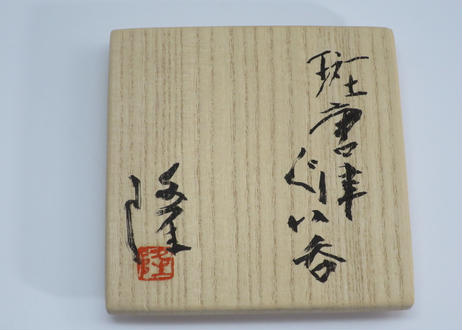 斑唐津
ぐい呑
隆
隆